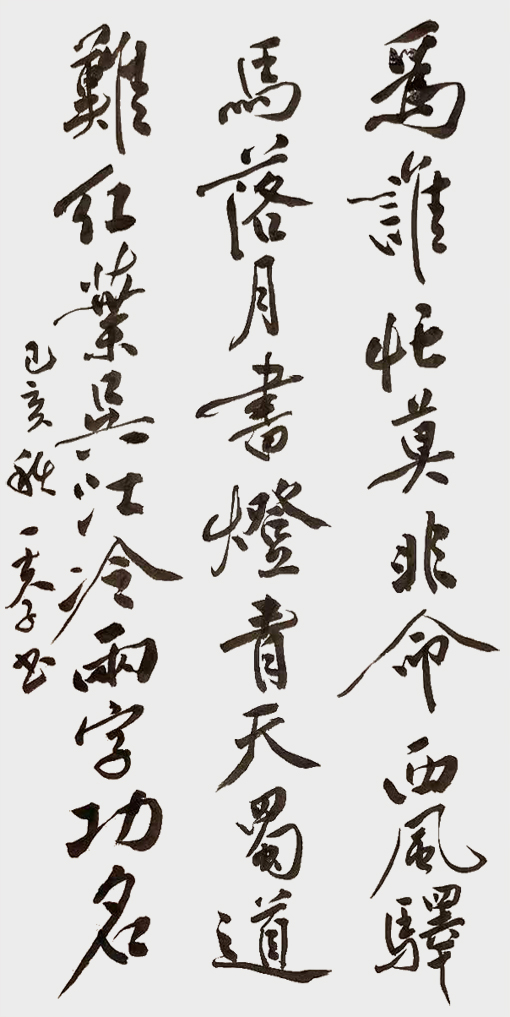 為誰忙莫非命西風驛
馬落月書燈青天蜀道
難紅葉吳江冷兩字功名
己亥秋一夫子书